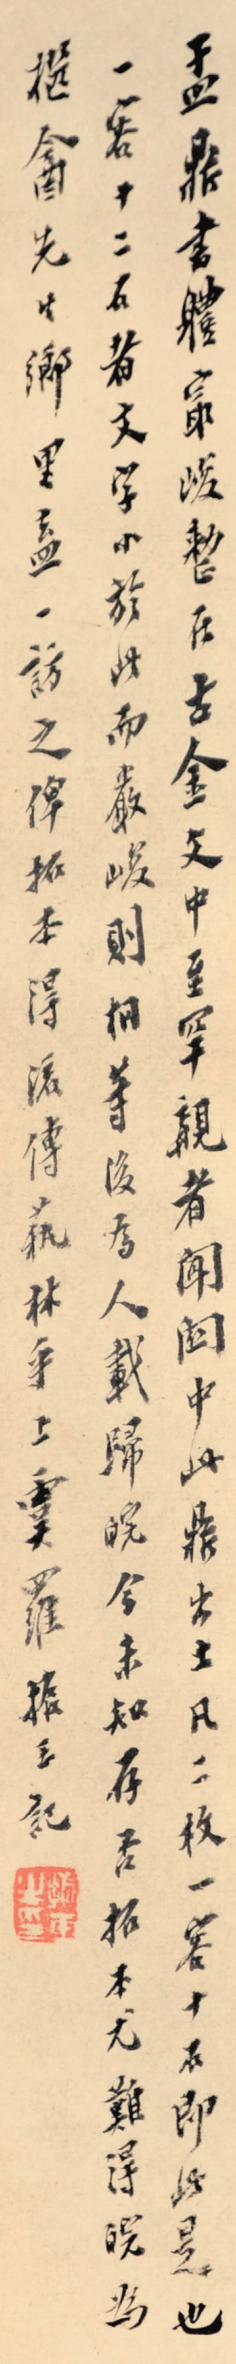 盂鼎書體寂峻整在古金文中至罕覯者聞関中此鼎出土凡二枚一容十石即此是也
一容十二石者文字小於此而嚴峻則相等後為人載歸皖今未知存否拓本尤難得皖為
樾龕先生鄉里盍一訪之俾拓本得流傳蓺林乎上虞羅振玉記